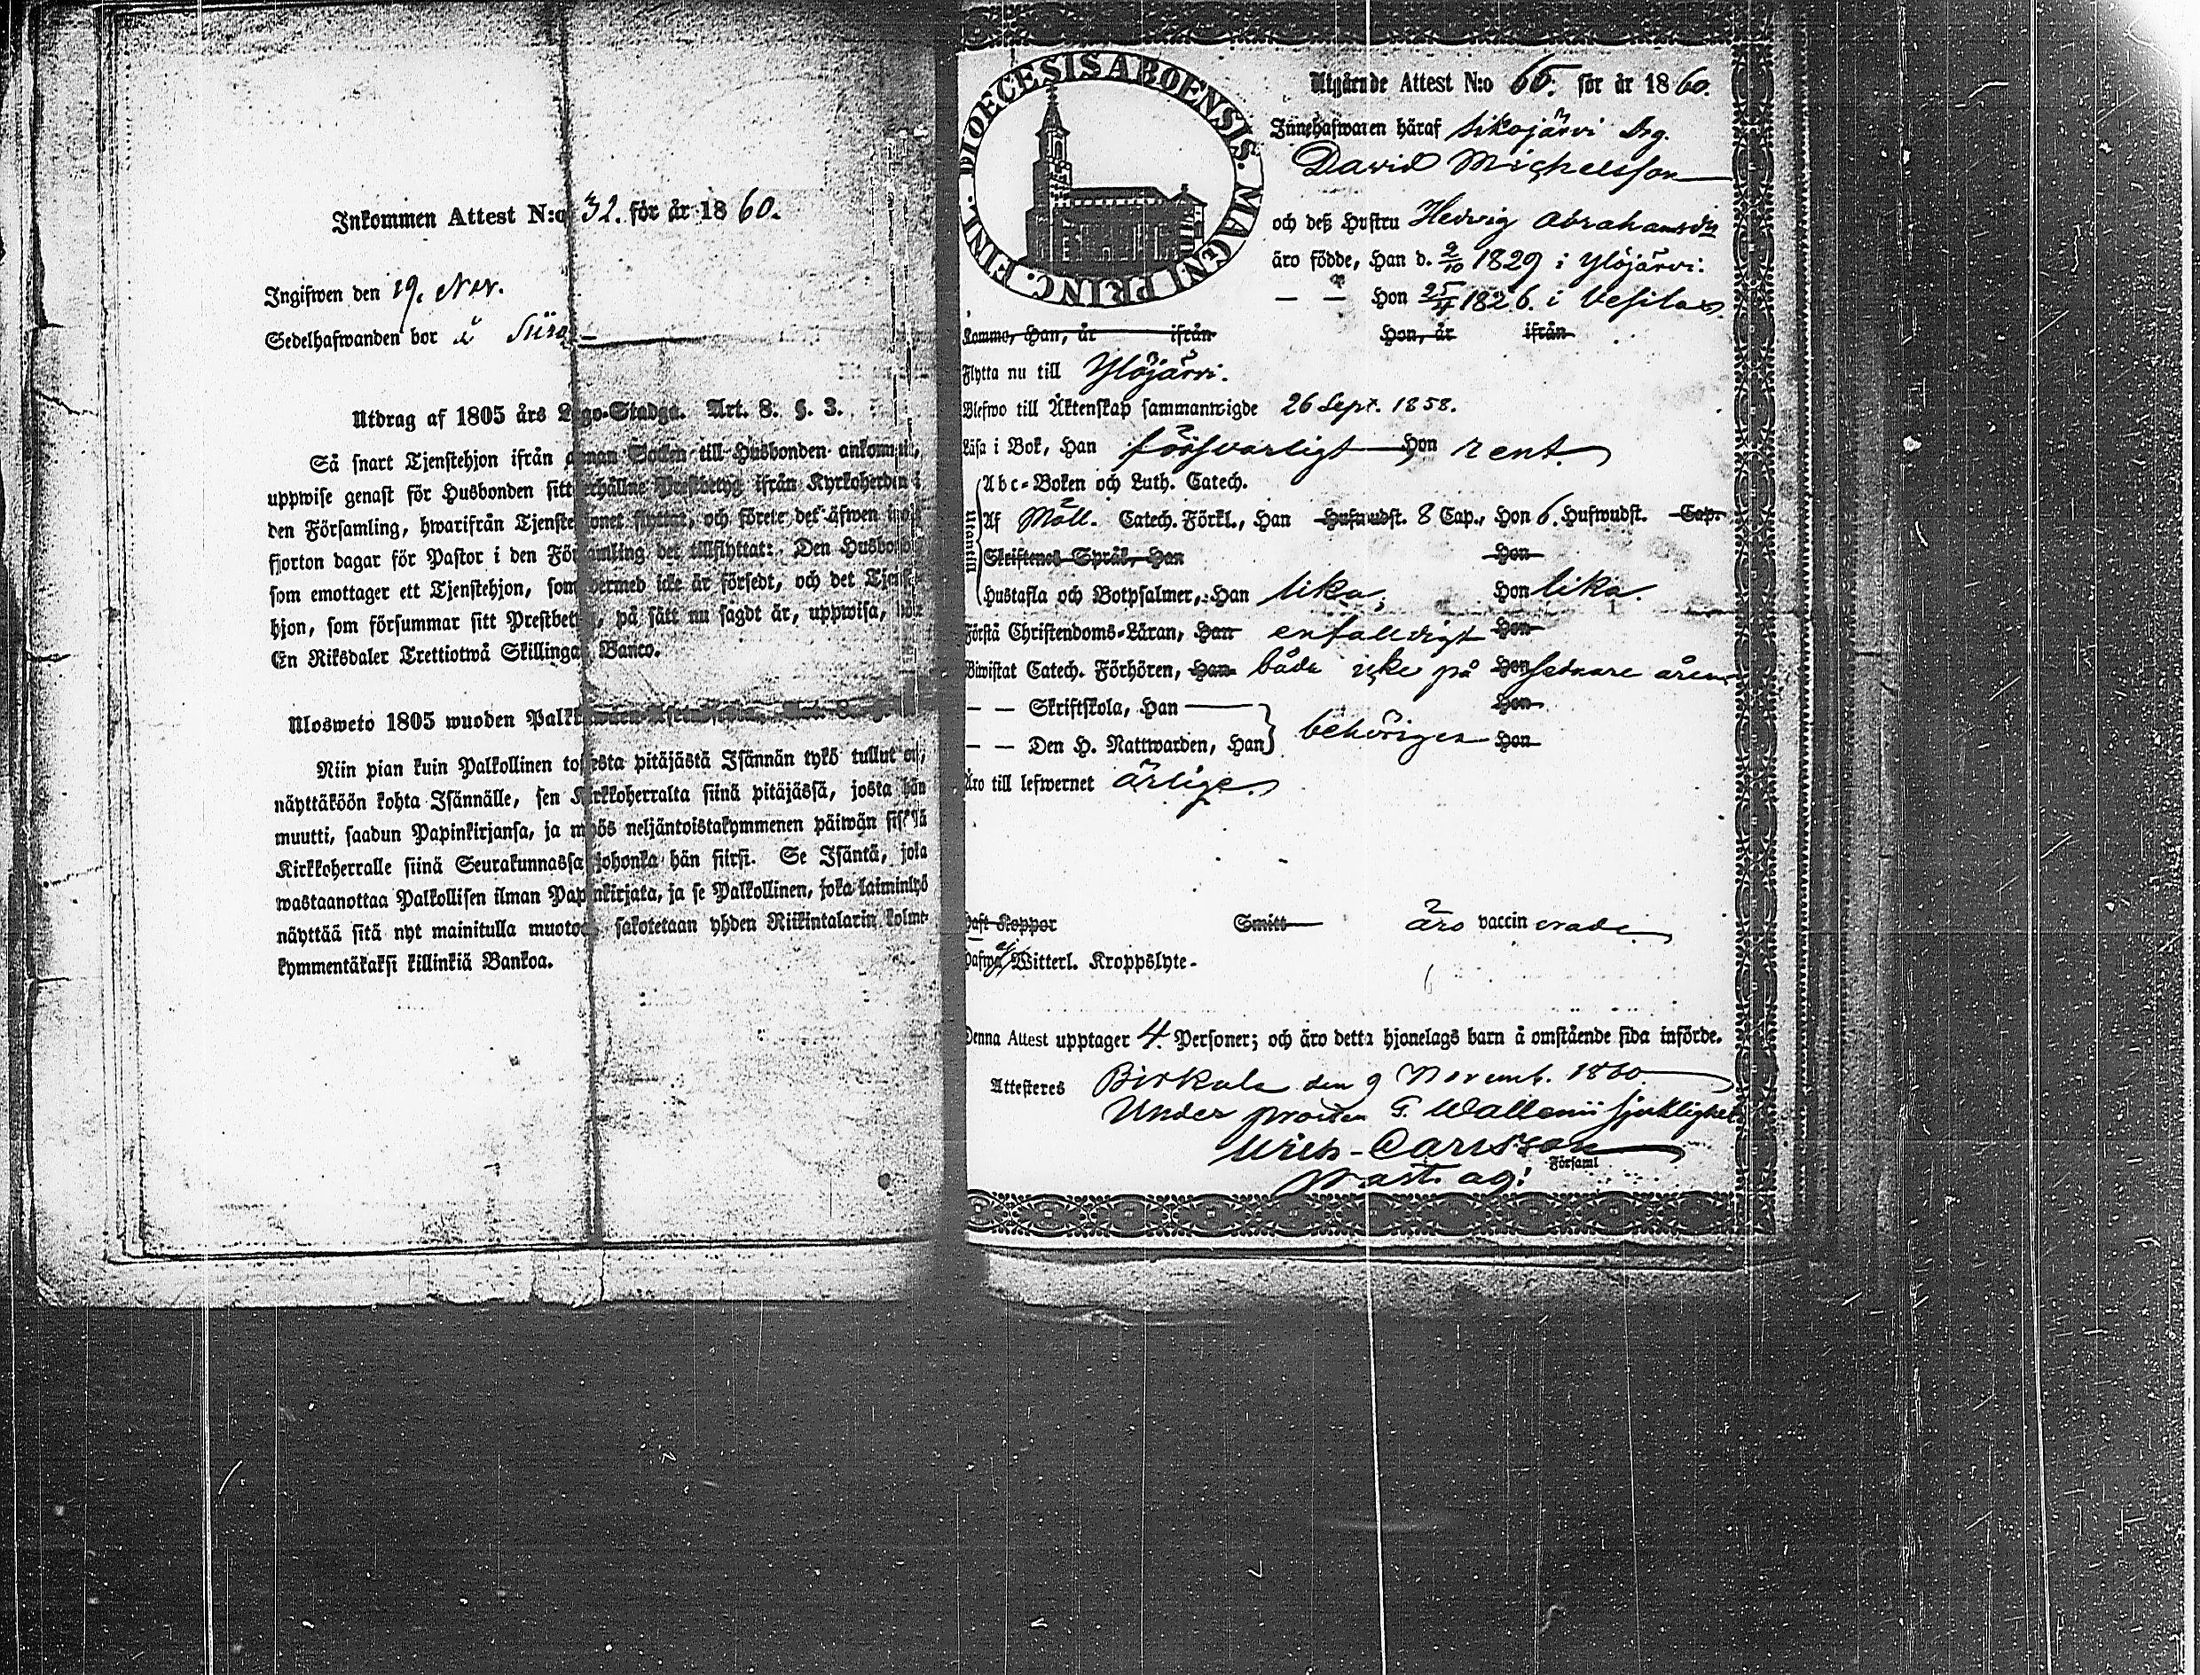 Inkommen Attest N:o 32. för år 1860.
Ingifwen den 19. Nov.
Sedelhafwanden bor å
Utdrag af 1805 års Lego-Stadga. Art. 8. §. 3.
Så snart Tjenstehjon ifrån annan Socken till Husbonden ankommit,
uppwise genast för Husbonden sitt erhållne Prestbetyg ifrån Kyrkoherden i
den Församling, hwarifrån Tjenstehjonet flyttat, och förete det äfwen inom
fjorton dagar för Pastor i den Församling det tillflyttat: Den Husbonde
som emottager ett Tjenstehjon, som dermed icke är försedt, och det Tjenste-
hjon, som försummar sitt Prestbetyg, på sätt nu sagdt är, uppwisa, böte
En Riksdaler Trettiotwå Skillingar Banco.
Ulosweto 1805 wuoden
Niin pian kuin Palkollinen toisesta pitäjästä Isännän tykö tullut on,
näyttäköön kohta Isännälle, sen Kirkkoherralta siinä pitäjässä, josta hän
muutti, saadun Papinkirjansa, ja myös neljäntoistakymmenen päiwän sisällä
Kirkkoherralle siinä Seurakunnassa johonka hän siirsi. Se Isäntä, joka
wastaanottaa Palkollisen ilman Papinkirjata, ja se Palkollinen, joka laiminlyö
näyttää sitä nyt mainitulla muotoa, sakotetaan yhden Riikintalarin kolme-
kymmentäkaksi killinkiä Bankoa.
DIOECESIS ABOENSIS. MAGNI PRINC. FINL.
Utgående Attest N:o 65. för år 1860.
Innehafwaren häraf Sikojärvi Drg.
David Michelsson
och deß Hustru Hedvig Abrahamsdr
äro födde, Han d. 2/10 1829 i Ylöjärvi.
— — Hon 25/4 1826. i Vesilax
Komma, Han, år ifrån Hon, år ifrån
Flytta nu till Ylöjärvi.
Blefwo till Äktenskap sammanwigde 26 Sept. 1858.
Läsa i Bok, Han försvarligt Hon rent.
Utantill
Abc-Boken och Luth. Catech.
Af Möll. Catech. Förkl., Han Hufwudst. 8 Cap., Hon 6. Hufwudst. Cap.
Skriftenes Språk, Han Hon
Hustafla och Botpsalmer, Han lika, Hon lika.
Förstå Christendoms-Läran, Han enfalldigt Hon
Biwistat Catech. Förhören, Han båda icke på Hon sednare åren
— — Skriftskola, Han Hon
— — Den H. Nattwarden, Han behörigen Hon
Äro till lefwernet ärlige.
Haft Koppor Smitt äro vaccinerade.
Hafwa Witterl. Kroppslyte-
Denna Attest upptager 4. Personer; och äro detta hjonelags barn å omstående sida införde.
Attesteres Birkala den 9 Novemb. 1860
Under prosten G. Wallenii sjuklighet
Ulrich Carlsson
Församl
Past. adj.